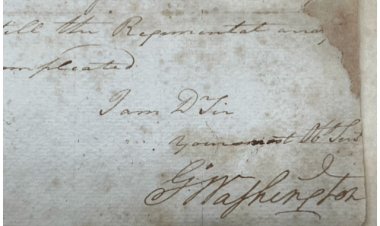 till the Regimental
mpleated
I am Dr Sir
Your most Obt Serv
Go Washington